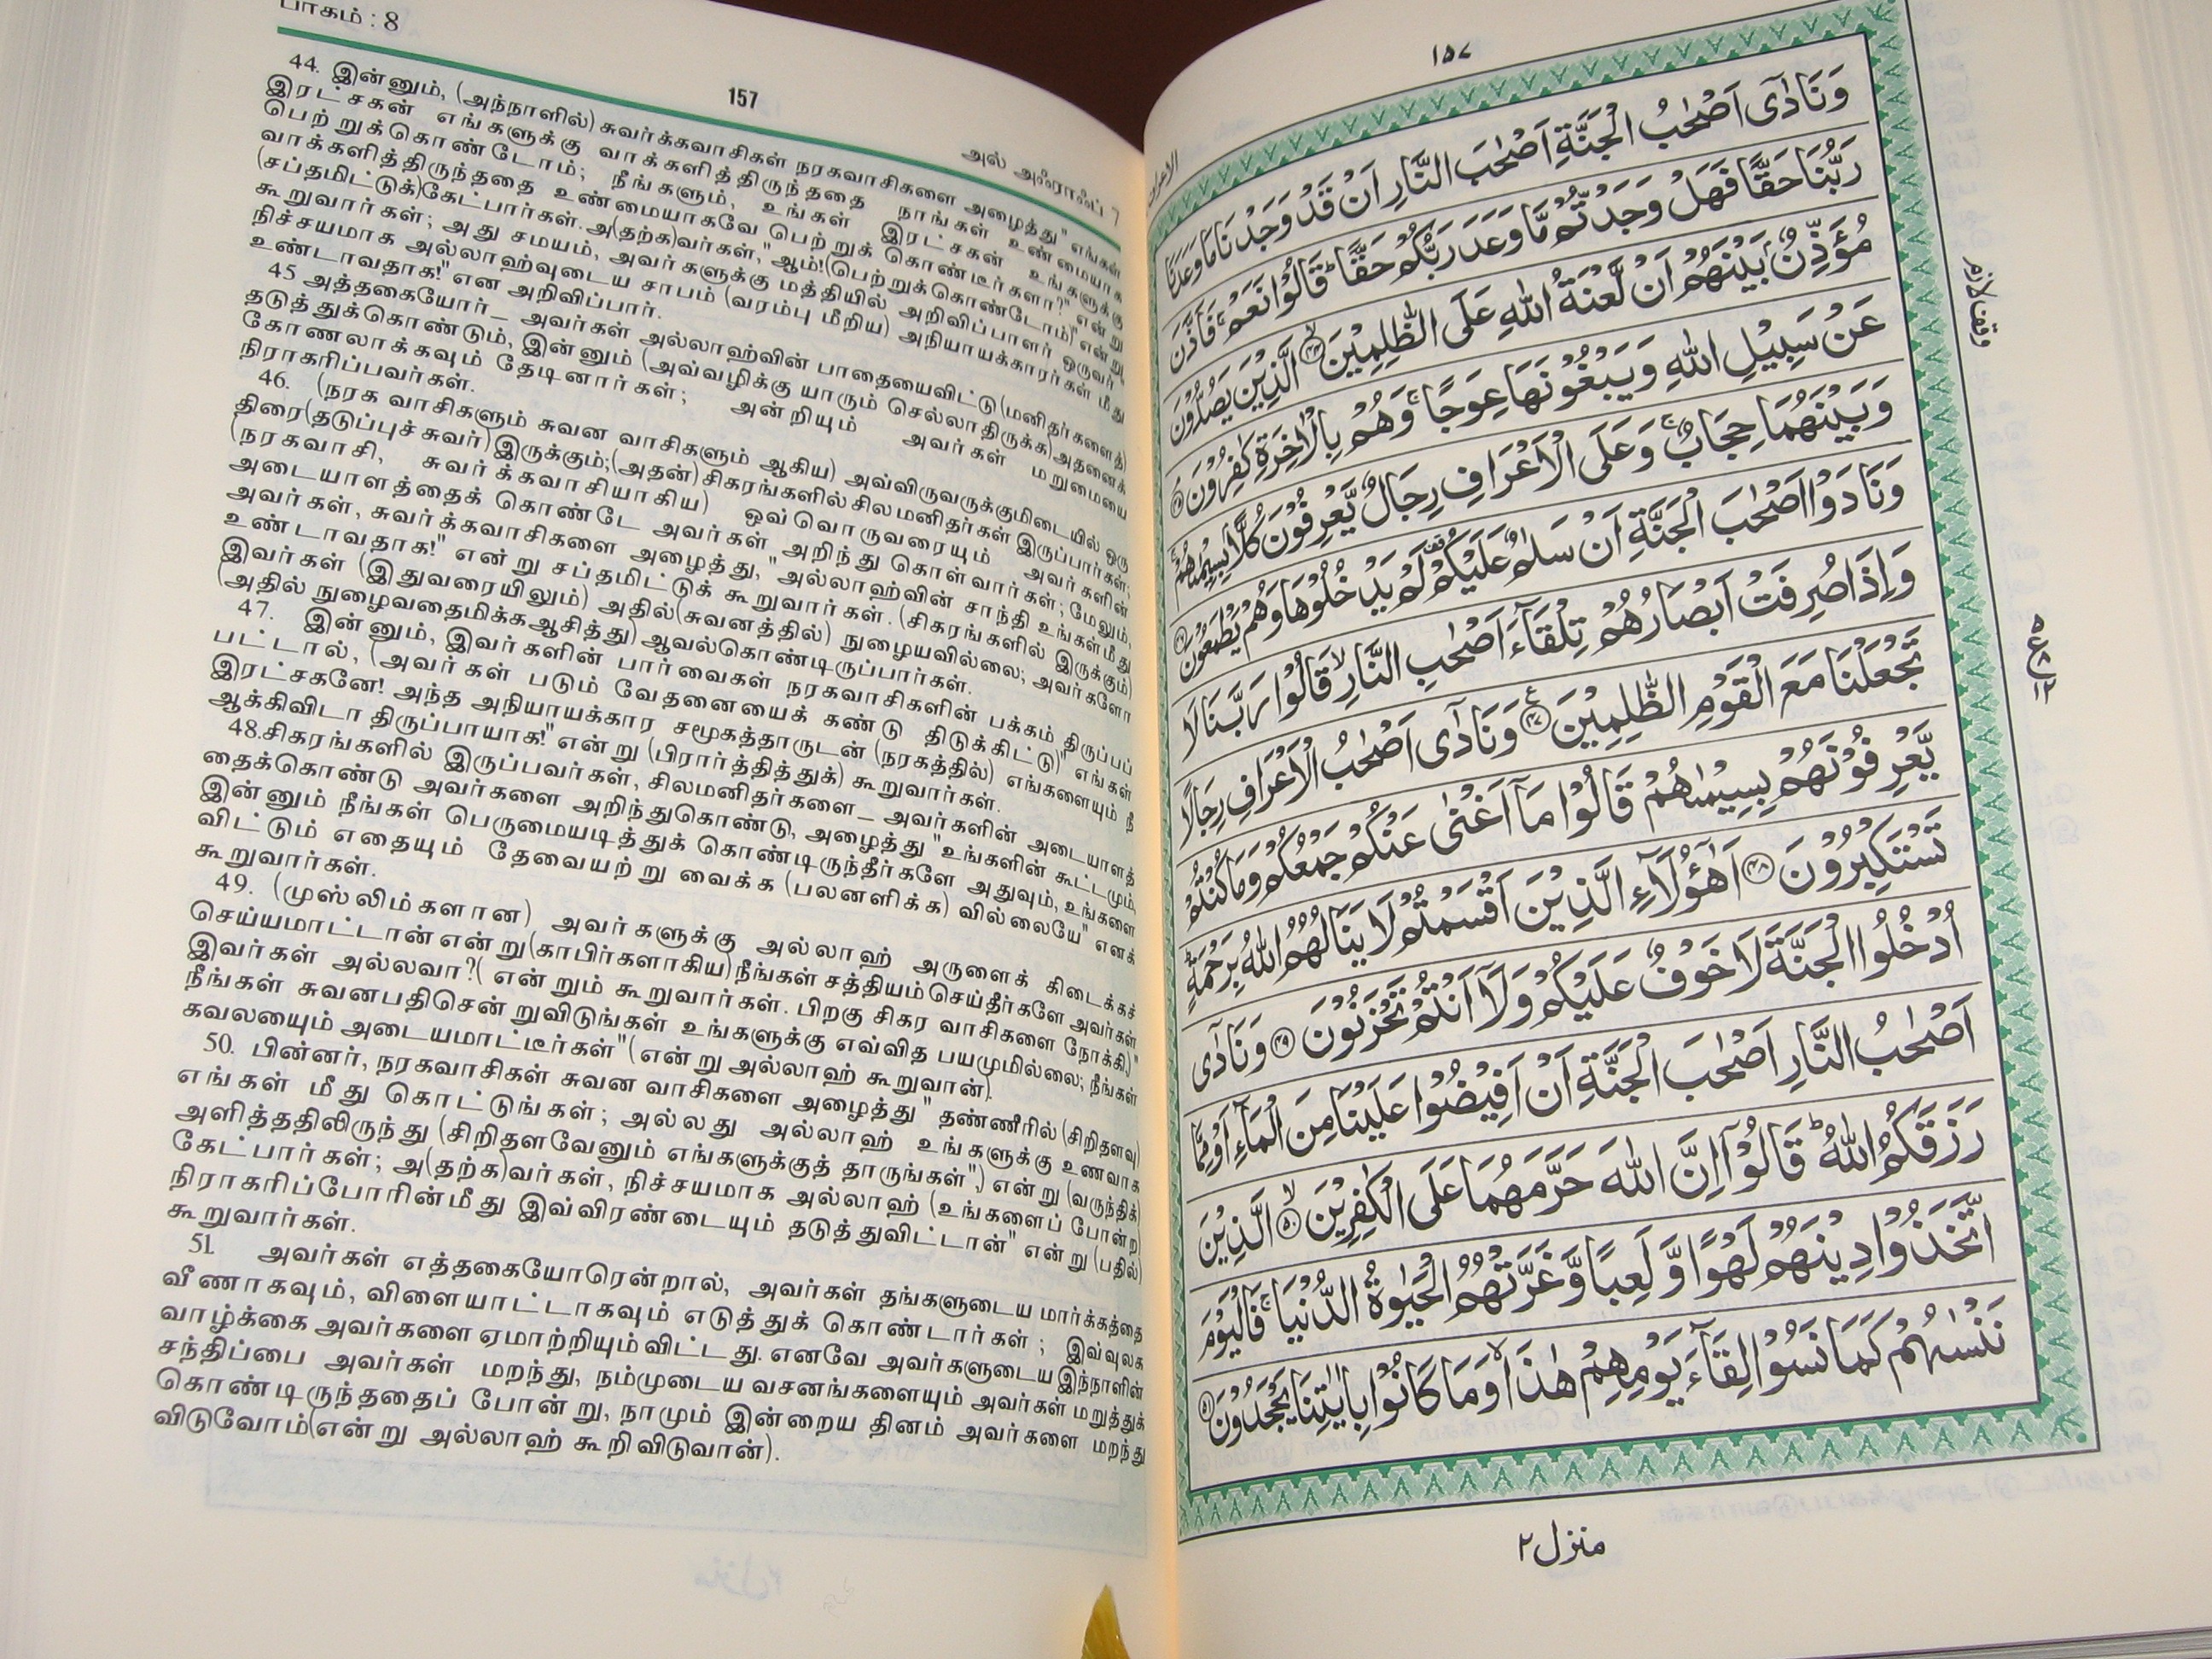 பாகம் : 8
157
அல் அஃராஃப் 7
44. இன்னும், (அந்நாளில்) சுவர்க்கவாசிகள் நரகவாசிகளை அழைத்து" எங்கள்
இரட்சகன் எங்களுக்கு வாக்களித்திருந்ததை நாங்கள் உண்மையாக
பெற்றுக்கொண்டோம்; நீங்களும், உங்கள் இரட்சகன் உங்களுக்கு
வாக்களித்திருந்ததை உண்மையாகவே பெற்றுக் கொண்டீர்களா?" என்று
(சப்தமிட்டுக்)கேட்பார்கள். அ(தற்க)வர்கள்," ஆம்!(பெற்றுக்கொண்டோம்)" என்று
கூறுவார்கள்; அது சமயம், அவர்களுக்கு மத்தியில் அறிவிப்பாளர் ஒருவர்"
நிச்சயமாக அல்லாஹ்வுடைய சாபம் (வரம்பு மீறிய) அநியாயக்காரர்கள் மீது
உண்டாவதாக!" என அறிவிப்பார்.
45 அத்தகையோர்_ அவர்கள் அல்லாஹ்வின் பாதையைவிட்டு(மனிதர்களைத்)
தடுத்துக்கொண்டும், இன்னும் (அவ்வழிக்கு யாரும் செல்லாதிருக்க) அதனைக்
கோணலாக்கவும் தேடினார்கள்; அன்றியும் அவர்கள் மறுமையை
நிராகரிப்பவர்கள்.
46. (நரக வாசிகளும் சுவன வாசிகளும் ஆகிய) அவ்விருவருக்குமிடையில் ஒரு
திரை(தடுப்புச் சுவர்)இருக்கும்;(அதன்) சிகரங்களில் சிலமனிதர்கள் இருப்பார்கள்;
(நரகவாசி, சுவர்க்கவாசியாகிய) ஒவ்வொருவரையும் அவர்களின்
அடையாளத்தைக் கொண்டே அவர்கள் அறிந்து கொள்வார்கள்; மேலும்,
அவர்கள், சுவர்க்கவாசிகளை அழைத்து, "அல்லாஹ்வின் சாந்தி உங்கள்மீது
உண்டாவதாக!" என்று சப்தமிட்டுக் கூறுவார்கள். (சிகரங்களில் இருக்கும்)
இவர்கள் (இதுவரையிலும்) அதில்(சுவனத்தில்) நுழையவில்லை; அவர்களோ
(அதில் நுழைவதைமிக்கஆசித்து) ஆவல்கொண்டிருப்பார்கள்.
47. இன்னும், இவர்களின் பார்வைகள் நரகவாசிகளின் பக்கம் திருப்பப்
பட்டால், (அவர்கள் படும் வேதனையைக் கண்டு திடுக்கிட்டு)" எங்கள்
இரட்சகனே! அந்த அநியாயக்கார சமூகத்தாருடன் (நரகத்தில்) எங்களையும் நீ
ஆக்கிவிடா திருப்பாயாக!" என்று (பிரார்த்தித்துக்) கூறுவார்கள்.
48.சிகரங்களில் இருப்பவர்கள், சிலமனிதர்களை_ அவர்களின் அடையாளத்
தைக்கொண்டு அவர்களை அறிந்துகொண்டு, அழைத்து "உங்களின் கூட்டமும்,
இன்னும் நீங்கள் பெருமையடித்துக் கொண்டிருந்தீர்களே அதுவும், உங்களை
விட்டும் எதையும் தேவையற்று வைக்க (பலனளிக்க) வில்லையே" எனக்
கூறுவார்கள்.
49. (முஸ்லிம்களான) அவர்களுக்கு அல்லாஹ் அருளைக் கிடைக்கச்
செய்யமாட்டான் என்று(காபிர்களாகிய)நீங்கள் சத்தியம் செய்தீர்களே அவர்கள்
இவர்கள் அல்லவா?( என்றும் கூறுவார்கள். பிறகு சிகர வாசிகளை நோக்கி,)"
நீங்கள் சுவனபதிசென்றுவிடுங்கள் உங்களுக்கு எவ்வித பயமுமில்லை; நீங்கள்
கவலையும் அடையமாட்டீர்கள்"(என்று அல்லாஹ் கூறுவான்).
50. பின்னர், நரகவாசிகள் சுவன வாசிகளை அழைத்து " தண்ணீரில் (சிறிதளவு)
எங்கள் மீது கொட்டுங்கள்; அல்லது அல்லாஹ் உங்களுக்கு உணவாக
அளித்ததிலிருந்து (சிறிதளவேனும் எங்களுக்குத் தாருங்கள்",) என்று (வருந்திக்)
கேட்பார்கள்; அ(தற்க)வர்கள், நிச்சயமாக அல்லாஹ் (உங்களைப் போன்ற)
நிராகரிப்போரின்மீது இவ்விரண்டையும் தடுத்துவிட்டான்" என்று (பதில்)
கூறுவார்கள்.
51. அவர்கள் எத்தகையோரென்றால், அவர்கள் தங்களுடைய மார்க்கத்தை
வீணாகவும், விளையாட்டாகவும் எடுத்துக் கொண்டார்கள்; இவ்வுலக
வாழ்க்கை அவர்களை ஏமாற்றியும்விட்டது. எனவே அவர்களுடைய இந்நாளின்
சந்திப்பை அவர்கள் மறந்து, நம்முடைய வசனங்களையும் அவர்கள் மறுத்துக்
கொண்டிருந்ததைப் போன்று, நாமும் இன்றைய தினம் அவர்களை மறந்து
விடுவோம்(என்று அல்லாஹ் கூறிவிடுவான்).
١٥٧
وَنَادٰٓى اَصْحٰبُ الْجَنَّةِ اَصْحٰبَ النَّارِ اَنْ قَدْ وَجَدْنَا مَا وَعَدَنَا
رَبُّنَا حَقًّا فَهَلْ وَجَدْتُّمْ مَّا وَعَدَ رَبُّكُمْ حَقًّا ؕ قَالُوْا نَعَمْ ۚ فَاَذَّنَ
مُؤَذِّنٌۢ بَيْنَهُمْ اَنْ لَّعْنَةُ اللّٰهِ عَلَى الظّٰلِمِيْنَ ۙ﴿٤٤﴾ الَّذِيْنَ يَصُدُّوْنَ
عَنْ سَبِيْلِ اللّٰهِ وَيَبْغُوْنَهَا عِوَجًا ۚ وَهُمْ بِالْاٰخِرَةِ كٰفِرُوْنَ ﴿٤٥﴾
وَبَيْنَهُمَا حِجَابٌ ۚ وَعَلَى الْاَعْرَافِ رِجَالٌ يَّعْرِفُوْنَ كُلًّاۢ بِسِيْمٰىهُمْ ۚ
وَنَادَوْا اَصْحٰبَ الْجَنَّةِ اَنْ سَلٰمٌ عَلَيْكُمْ ۫ لَمْ يَدْخُلُوْهَا وَهُمْ يَطْمَعُوْنَ ﴿٤٦﴾
وَاِذَا صُرِفَتْ اَبْصَارُهُمْ تِلْقَآءَ اَصْحٰبِ النَّارِ ۙ قَالُوْا رَبَّنَا لَا
تَجْعَلْنَا مَعَ الْقَوْمِ الظّٰلِمِيْنَ ﴿٤٧﴾ ع وَنَادٰٓى اَصْحٰبُ الْاَعْرَافِ رِجَالًا
يَّعْرِفُوْنَهُمْ بِسِيْمٰىهُمْ قَالُوْا مَآ اَغْنٰى عَنْكُمْ جَمْعُكُمْ وَمَا كُنْتُمْ
تَسْتَكْبِرُوْنَ ﴿٤٨﴾ اَهٰٓؤُلَآءِ الَّذِيْنَ اَقْسَمْتُمْ لَا يَنَالُهُمُ اللّٰهُ بِرَحْمَةٍ ؕ
اُدْخُلُوا الْجَنَّةَ لَا خَوْفٌ عَلَيْكُمْ وَلَآ اَنْتُمْ تَحْزَنُوْنَ ﴿٤٩﴾ وَنَادٰٓى
اَصْحٰبُ النَّارِ اَصْحٰبَ الْجَنَّةِ اَنْ اَفِيْضُوْا عَلَيْنَا مِنَ الْمَآءِ اَوْ مِمَّا
رَزَقَكُمُ اللّٰهُ ؕ قَالُوْٓا اِنَّ اللّٰهَ حَرَّمَهُمَا عَلَى الْكٰفِرِيْنَ ۙ﴿٥٠﴾ الَّذِيْنَ
اتَّخَذُوْا دِيْنَهُمْ لَهْوًا وَّلَعِبًا وَّغَرَّتْهُمُ الْحَيٰوةُ الدُّنْيَا ۚ فَالْيَوْمَ
نَنْسٰىهُمْ كَمَا نَسُوْا لِقَآءَ يَوْمِهِمْ هٰذَا ۙ وَمَا كَانُوْا بِاٰيٰتِنَا يَجْحَدُوْنَ ﴿٥١﴾
منزل ٢